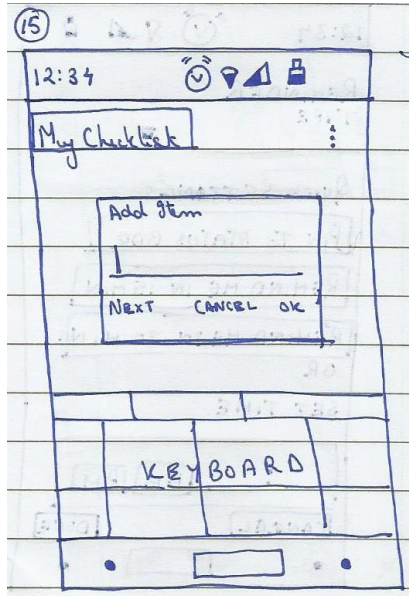 15
12:34
My Checklist
Add Item
NEXT CANCEL OK
KEYBOARD